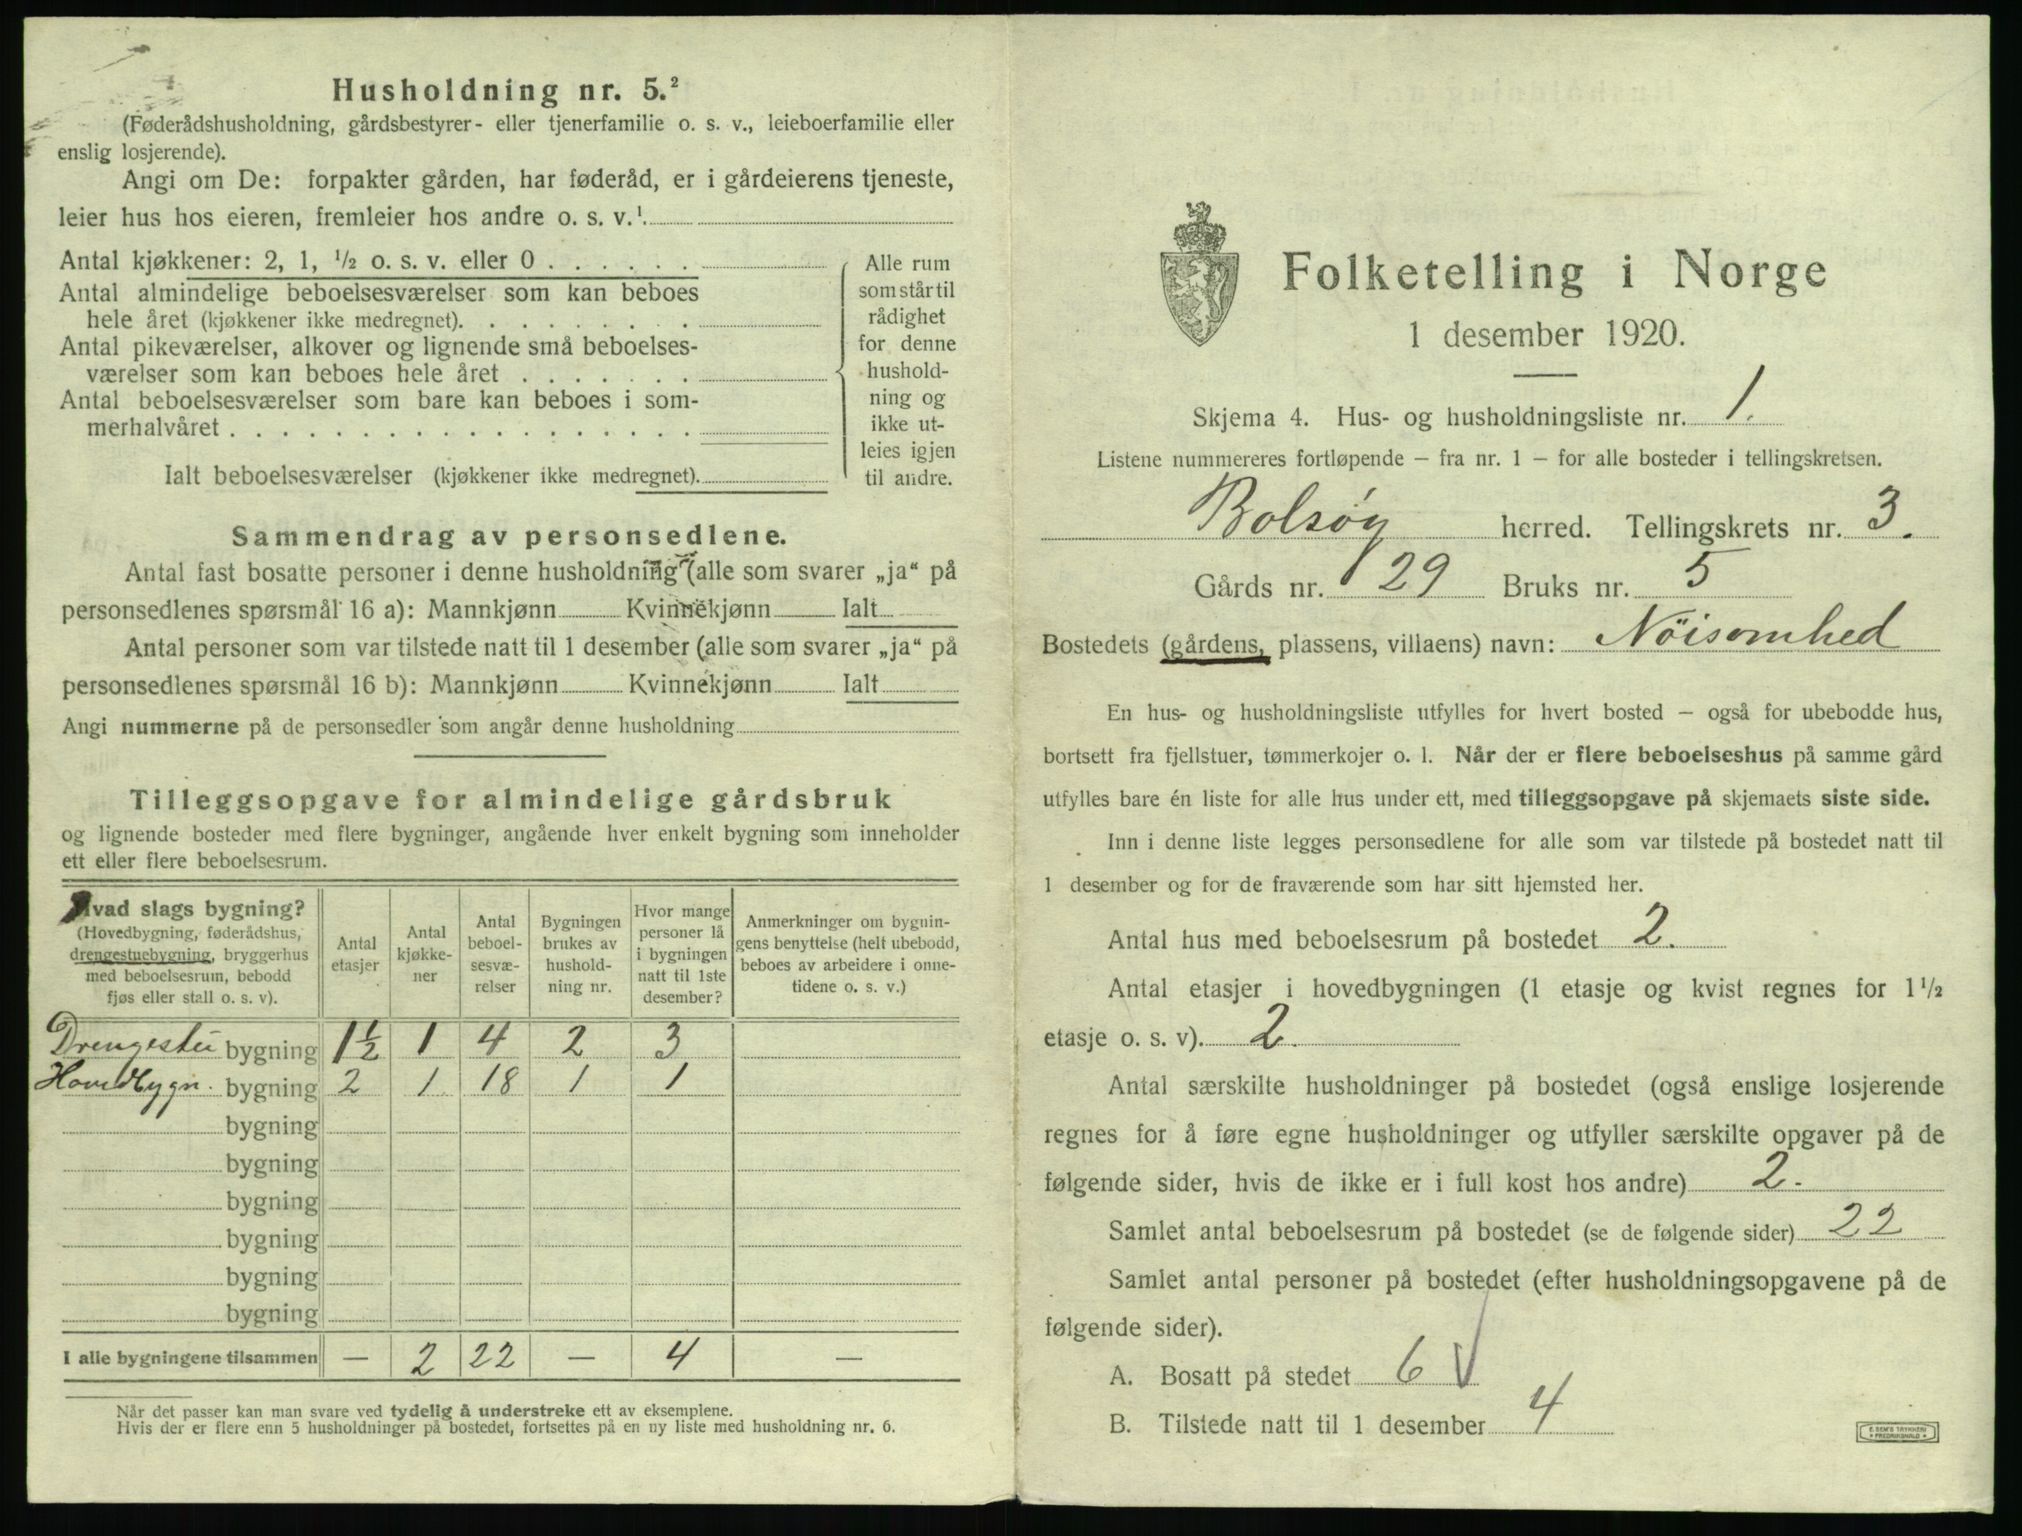 Husholdning nr. 5.²
(Føderådshusholdning, gårdsbestyrer- eller tjenerfamilie o. s. v., leieboerfamilie eller
enslig losjerende).
Angi om De: forpakter gården, har føderåd, er i gårdeierens tjeneste,
leier hus hos eieren, fremleier hos andre o. s. v.¹
Antal kjøkkener: 2, 1, ½ o. s. v. eller 0 . . . . . .
Antal almindelige beboelsesværelser som kan beboes
hele året (kjøkkener ikke medregnet). . . . . . . .
Antal pikeværelser, alkover og lignende små beboelses-
værelser som kan beboes hele året . . . . . . .
Antal beboelsesværelser som bare kan beboes i som-
merhalvåret . . . . . . . . . . . . . . . . . .
Ialt beboelsesværelser (kjøkkener ikke medregnet).
Alle rum
som står til
rådighet
for denne
hushold-
ning og
ikke ut-
leies igjen
til andre.
Sammendrag av personsedlene.
Antal fast bosatte personer i denne husholdning (alle som svarer „ja“ på
personsedlenes spørsmål 16 a): Mannkjønn Kvinnekjønn Ialt
Antal personer som var tilstede natt til 1 desember (alle som svarer „ja“ på
personsedlenes spørsmål 16 b): Mannkjønn Kvinnekjønn Ialt
Angi nummerne på de personsedler som angår denne husholdning
Tilleggsopgave for almindelige gårdsbruk
og lignende bosteder med flere bygninger, angående hver enkelt bygning som inneholder
ett eller flere beboelsesrum.
Hvad slags bygning?
(Hovedbygning, føderådshus,
drengestuebygning, bryggerhus
med beboelsesrum, bebodd
fjøs eller stall o. s. v).
Antal
etasjer
Antal
kjøkke-
ner
Antal
beboel-
sesvæ-
relser
Bygningen
brukes av
hushold-
ning nr.
Hvor mange
personer lå
i bygningen
natt til 1ste
desember?
Anmerkninger om bygnin-
gens benyttelse (helt ubebodd,
beboes av arbeidere i onne-
tidene o. s. v.)
Drengestu bygning 1½ 1 4 2 3
Hovedbygn. bygning 2 1 18 1 1
bygning
bygning
bygning
bygning
bygning
bygning
I alle bygningene tilsammen — 2 22 — 4 —
Når det passer kan man svare ved tydelig å understreke ett av eksemplene.
Hvis der er flere enn 5 husholdninger på bostedet, fortsettes på en ny liste med husholdning nr. 6.
Folketelling i Norge
1 desember 1920.
Skjema 4. Hus- og husholdningsliste nr. 1.
Listene nummereres fortløpende – fra nr. 1 – for alle bosteder i tellingskretsen.
Bolsøy herred. Tellingskrets nr. 3.
Gårds nr. 29 Bruks nr. 5
Bostedets (gårdens, plassens, villaens) navn: Nöisomhed
En hus- og husholdningsliste utfylles for hvert bosted – også for ubebodde hus,
bortsett fra fjellstuer, tømmerkojer o. l. Når der er flere beboelseshus på samme gård
utfylles bare én liste for alle hus under ett, med tilleggsopgave på skjemaets siste side.
Inn i denne liste legges personsedlene for alle som var tilstede på bostedet natt til
1 desember og for de fraværende som har sitt hjemsted her.
Antal hus med beboelsesrum på bostedet 2.
Antal etasjer i hovedbygningen (1 etasje og kvist regnes for 1½
etasje o. s. v). 2.
Antal særskilte husholdninger på bostedet (også enslige losjerende
regnes for å føre egne husholdninger og utfyller særskilte opgaver på de
følgende sider, hvis de ikke er i full kost hos andre) 2.
Samlet antal beboelsesrum på bostedet (se de følgende sider) 22
Samlet antal personer på bostedet (efter husholdningsopgavene på de
følgende sider).
A. Bosatt på stedet 6 √
B. Tilstede natt til 1 desember 4
E. SEM'S TRYKKERI
FREDRIKSHALD